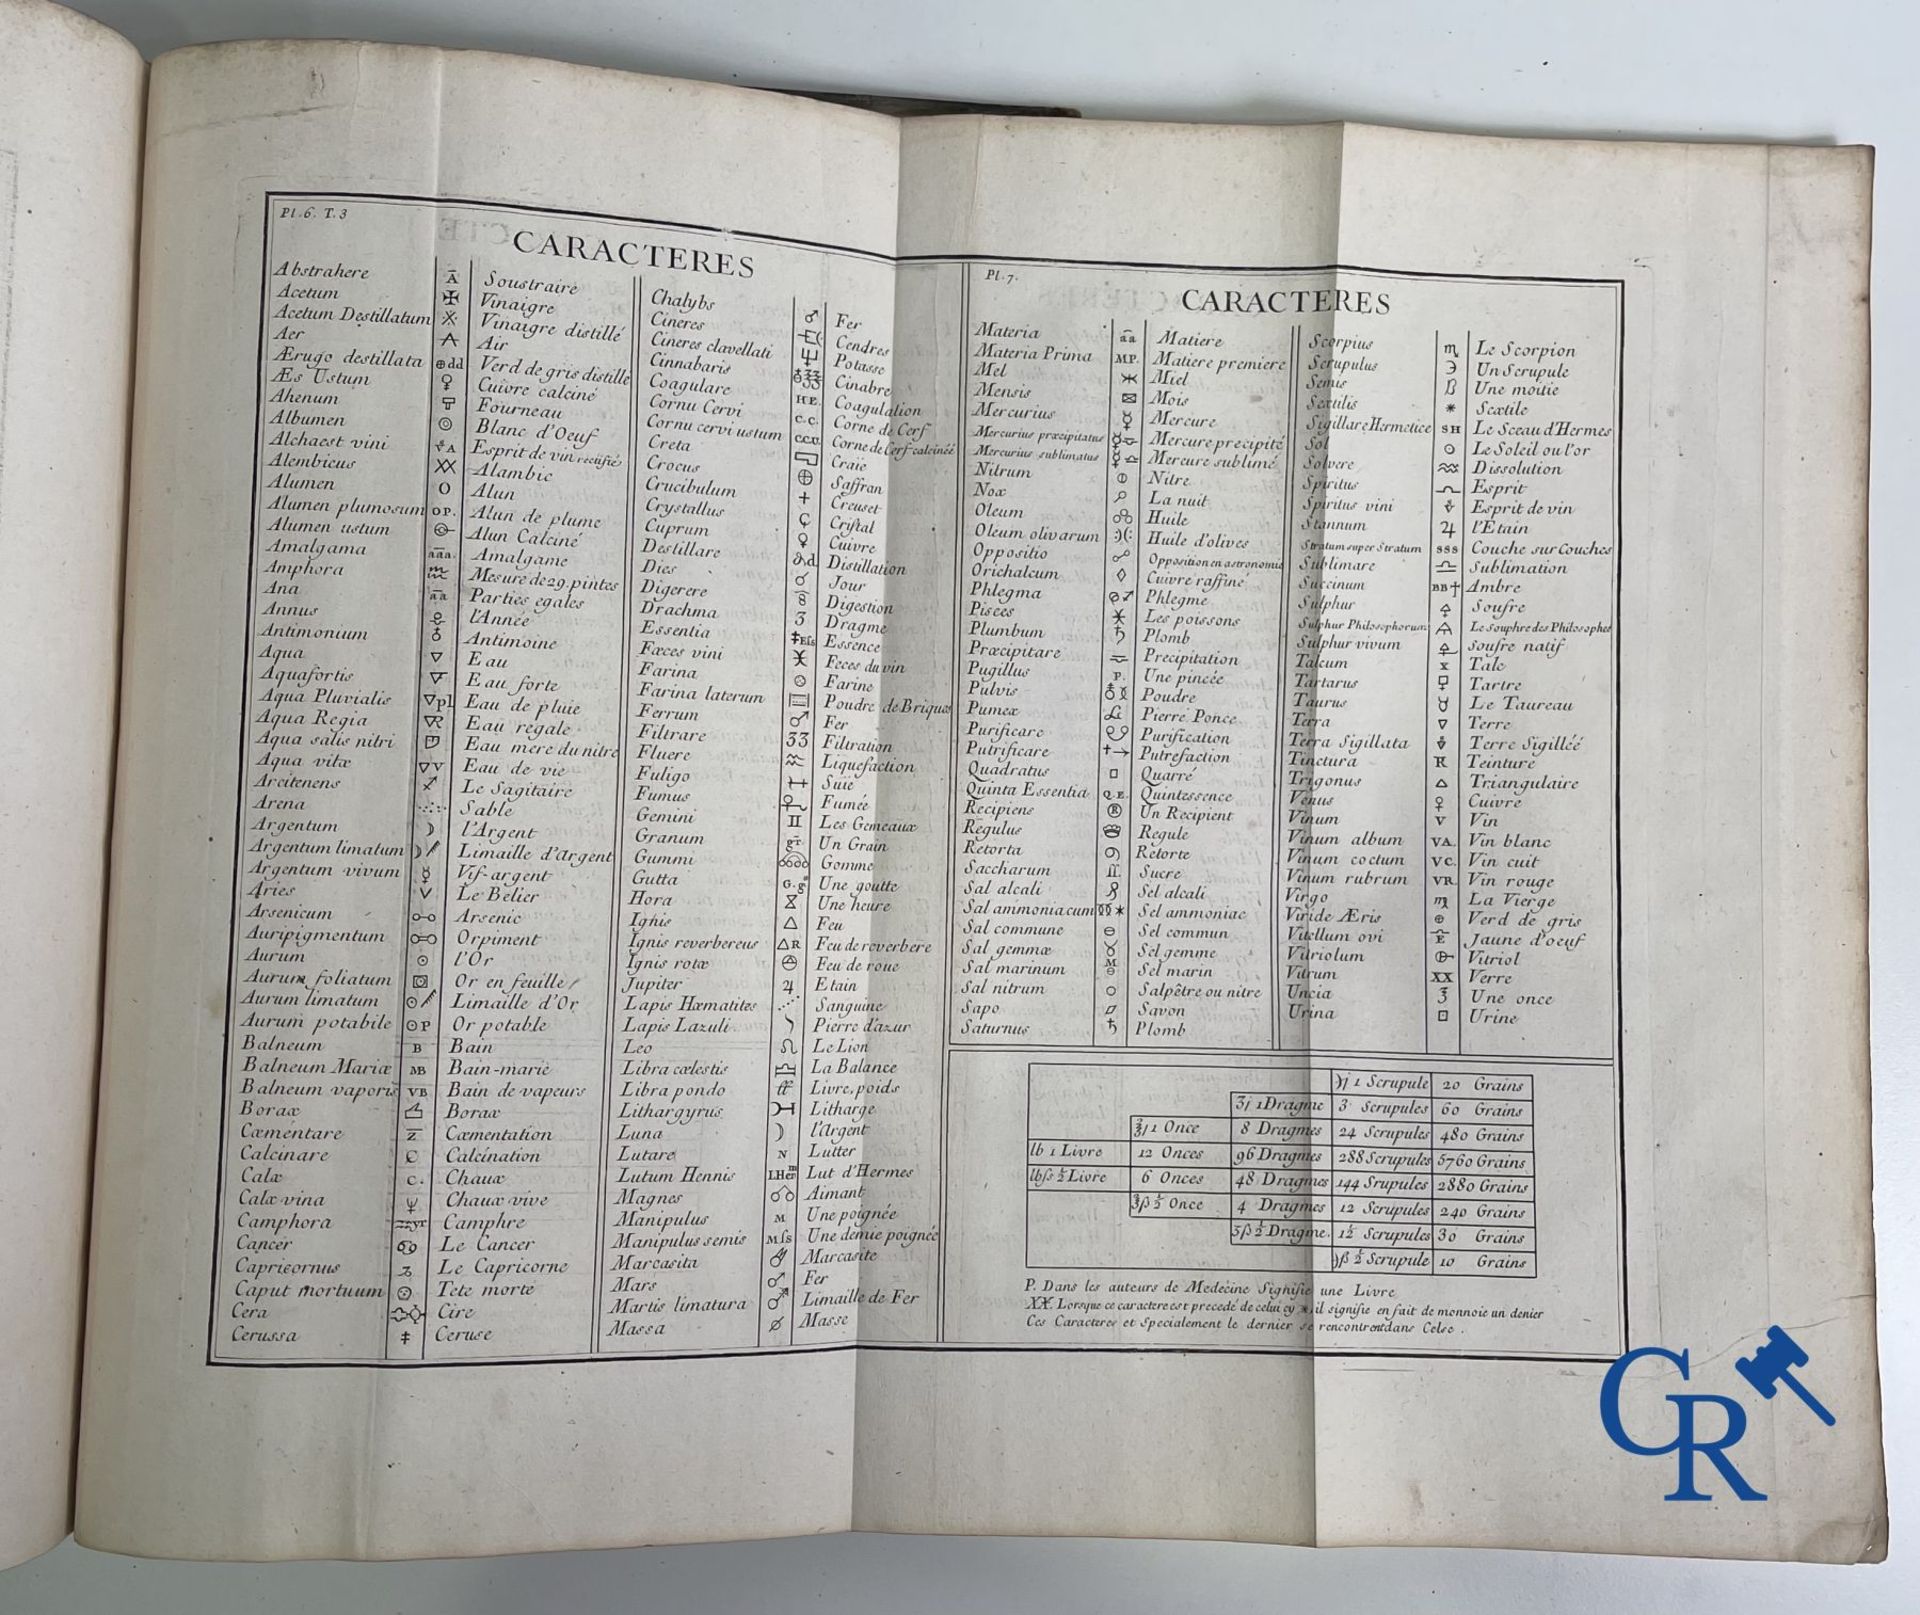 Pl. 6. T. 3
CARACTERES
Abstrahere Ā Soustraire
Acetum ✠ Vinaigre
Acetum Destillatum Vinaigre distillé
Aer Air
Ærugo destillata ⊕dd Verd de gris distillé
Æs Ustum ♀ Cuivre calciné
Ahenum Fourneau
Albumen ◎ Blanc d'Oeuf
Alchaest vini Esprit de vin rectifié
Alembicus XX Alambic
Alumen O Alun
Alumen plumosum OP. Alun de plume
Alumen ustum Alun Calciné
Amalgama aaa. Amalgame
Amphora Mesure de 29. pintes
Ana aa Parties egales
Annus l'Année
Antimonium ♁ Antimoine
Aqua ▽ Eau
Aquafortis Eau forte
Aqua Pluvialis ▽pl Eau de pluie
Aqua Regia ▽R Eau regale
Aqua salis nitri Eau mere du nitre
Aqua vitæ ▽V Eau de vie
Arcitenens ♐ Le Sagitaire
Arena Sable
Argentum ☽ l'Argent
Argentum limatum Limaille d'Argent
Argentum vivum ☿ Vif-argent
Aries V Le Belier
Arsenicum o-o Arsenic
Auripigmentum Orpiment
Aurum ☉ l'Or
Aurum foliatum Or en feuille
Aurum limatum Limaille d'Or
Aurum potabile ☉P Or potable
Balneum B Bain
Balneum Mariæ MB Bain-marie
Balneum vaporis VB Bain de vapeurs
Borax Borax
Cæmentare Z Cæmentation
Calcinare C Calcination
Calx C. Chaux
Calx vina Chaux vive
Camphora Camphre
Cancer ♋ Le Cancer
Capricornus ♑ Le Capricorne
Caput mortuum Tete morte
Cera Cire
Cerussa ‡ Ceruse
Chalybs ♂ Fer
Cineres Cendres
Cineres clavellati Potasse
Cinnabaris Cinabre
Coagulare HE. Coagulation
Cornu Cervi C.C. Corne de Cerf
Cornu cervi ustum C.C.V. Corne de Cerf calcinée
Creta Craie
Crocus ⊕ Saffran
Crucibulum + Creuset
Crystallus Cristal
Cuprum ♀ Cuivre
Destillare Distillation
Dies Jour
Digerere Digestion
Drachma ʒ Dragme
Essentia ‡Eſs Essence
Fæces vini Feces du vin
Farina Farine
Farina laterum Poudre de Briques
Ferrum ♂ Fer
Filtrare 33 Filtration
Fluere Liquefaction
Fuligo Suie
Fumus Fumée
Gemini ♊ Les Gemeaux
Granum gr Un Grain
Gummi Gomme
Gutta G. g Une goutte
Hora Une heure
Ignis △ Feu
Ignis reverbereus △R Feu de reverbere
Ignis rotæ Feu de roue
Jupiter ♃ Etain
Lapis Hæmatites Sanguine
Lapis Lazuli Pierre d'azur
Leo ♌ Le Lion
Libra cælestis ♎ La Balance
Libra pondo Livre, poids
Lithargyrus Litharge
Luna ☽ l'Argent
Lutare N Lutter
Lutum Hennis LHer Lut d'Hermes
Magnes Aimant
Manipulus M Une poignée
Manipulus semis Mſs Une demie poignée
Marcasita Marcasite
Mars ♂ Fer
Martis limatura Limaille de Fer
Massa Masse
Pl. 7.
CARACTERES
Materia aa Matiere
Materia Prima MP. Matiere premiere
Mel Miel
Mensis ⊠ Mois
Mercurius ☿ Mercure
Mercurius præcipitatus Mercure precipité
Mercurius sublimatus Mercure sublimé
Nitrum Nitre
Nox La nuit
Oleum Huile
Oleum olivarum Huile d'olives
Oppositio ☍ Opposition en astronomie
Orichalcum ◊ Cuivre raffiné
Phlegma Phlegme
Pisces Les poissons
Plumbum ♄ Plomb
Præcipitare Precipitation
Pugillus P. Une pincée
Pulvis Poudre
Pumex Pierre Ponce
Purificare Purification
Putrificare Putrefaction
Quadratus □ Quarré
Quinta Essentia Q.E. Quintessence
Recipiens ® Un Recipient
Regulus Regule
Retorta Retorte
Saccharum Sucre
Sal alcali Sel alcali
Sal ammoniacum Sel ammoniac
Sal commune ⊖ Sel commun
Sal gemmæ Sel gemme
Sal marinum Sel marin
Sal nitrum ○ Salpêtre ou nitre
Sapo Savon
Saturnus ♄ Plomb
Scorpius ♏ Le Scorpion
Scrupulus Un Scrupule
Semis ß Une moitie
Sextilis * Sextile
Sigillare Hermetice SH Le Sceau d'Hermes
Sol ☉ Le Soleil ou l'or
Solvere Dissolution
Spiritus Esprit
Spiritus vini Esprit de vin
Stannum ♃ l'Etain
Stratum super Stratum SSS Couche sur Couches
Sublimare Sublimation
Succinum BB† Ambre
Sulphur Soufre
Sulphur Philosophorum Le Souphre des Philosophes
Sulphur vivum Soufre natif
Talcum X Talc
Tartarus Tartre
Taurus ♉ Le Taureau
Terra ▽ Terre
Terra Sigillata Terre Sigilléé
Tinctura R Teinture
Trigonus △ Triangulaire
Venus ♀ Cuivre
Vinum V Vin
Vinum album VA. Vin blanc
Vinum coctum VC. Vin cuit
Vinum rubrum VR. Vin rouge
Virgo ♍ La Vierge
Viride Æris ⊕ Verd de gris
Vitellum ovi Jaune d'oeuf
Vitriolum Vitriol
Vitrum XX Verre
Uncia ℥ Une once
Urina ⊡ Urine
℈j 1 Scrupule 20 Grains
ʒj 1 Dragme 3 Scrupules 60 Grains
℥j 1 Once 8 Dragmes 24 Scrupules 480 Grains
lb 1 Livre 12 Onces 96 Dragmes 288 Scrupules 5760 Grains
lbß ½ Livre 6 Onces 48 Dragmes 144 Srupules 2880 Grains
℥ß ½ Once 4 Dragmes 12 Scrupules 240 Grains
ʒß ½ Dragme. 1½ Scrupules 30 Grains
℈ß ½ Scrupule 10 Grains
P. Dans les auteurs de Medecine Signifie une Livre
XX. Lorsque ce caractere est precedé de celui cy *, il signifie en fait de monnoie un denier
Ces Caracteres et Specialement le dernier se rencontrent dans Celse.
CR